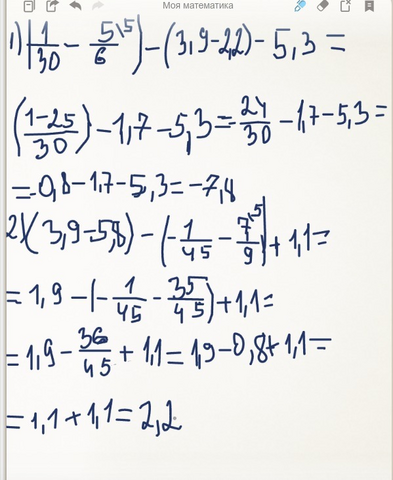 Моя математика
1) (1/30 - 5\5/6) - (3,9-2,2) - 5,3 =
(1-25/30) - 1,7 - 5,3 = 24/30 - 1,7 - 5,3 =
= -0,8 - 1,7 - 5,3 = -7,8
2) (3,9-5,8) - (-1/45 - 7\5/9) + 1,1 =
= 1,9 - (-1/45 - 35/45) + 1,1 =
= 1,9 - 36/45 + 1,1 = 1,9 - 0,8 + 1,1 =
= 1,1 + 1,1 = 2,2